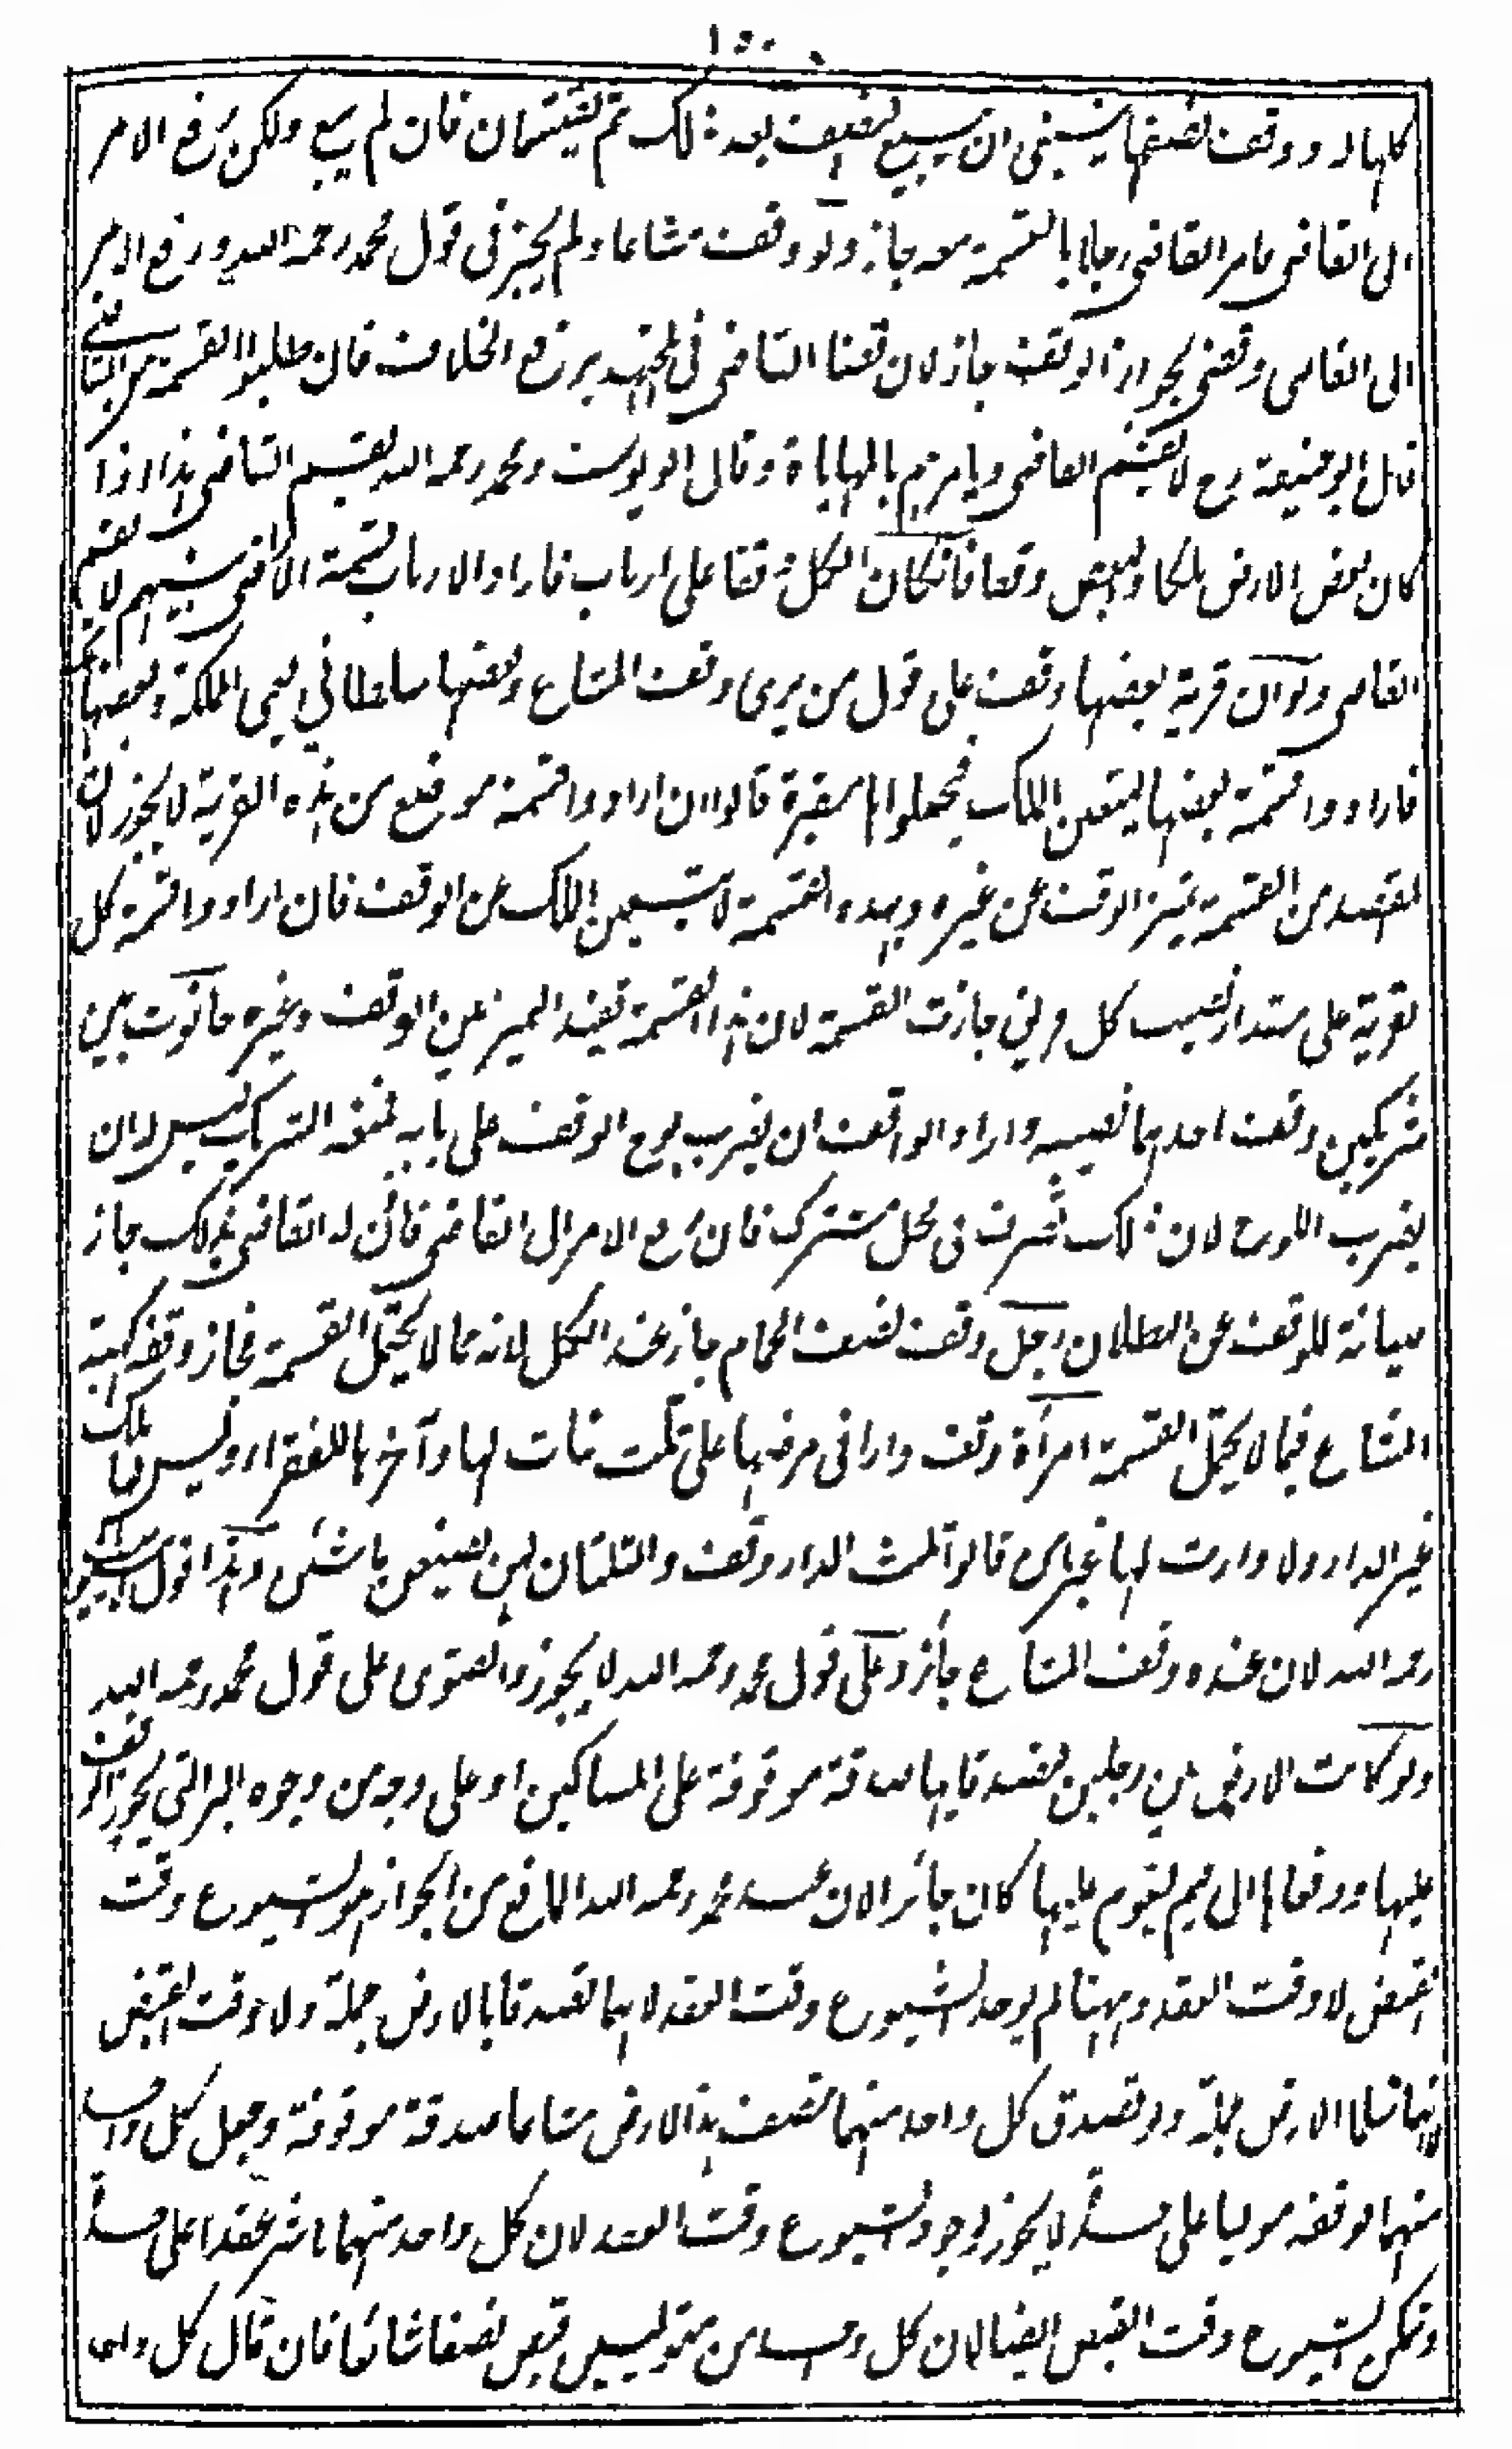 ١٥٠
كلها له ووقف نصفها ينبغي ان يبيع نصيبه بعد ذلك ثم يقتسمان فان لم يبع ولكن رفع الامر
الى القاضي فامر القاضي رجلا بالقسمة معه جاز ولو وقف مشاعا ولم يجز في قول محمد رحمه الله ورفع الامر
الى القاضي وقضى بجواز الوقف جاز لان قضاء القاضي في المجتهد يرفع الخلاف فان طلبوا القسمة من القاضي
قال ابو حنيفة رح لا يقسم القاضي ويامرهم بالمهاياة وقال ابو يوسف ومحمد رحمه الله يقسم القاضي هذا اذا
كان بعض الارض ملكا وبعض وقفا فان كان الكل وقفا على ارباب فاراد الارباب قسمة الاراضي بينهم لا يقسم
القاضي ولو ان قرية بعضها وقف على قول من يرى وقف المشاع وبعضها سلطاني يعني المملكة وبعضها
فارادوا قسمة بعضها ليتعين الملك فيجعلوا مقبرة قالوا ان ارادوا قسمة موضع من هذه القرية لا يجوز لان
المقصد من القسمة تميز الوقف عن غيره وبهذه القسمة لا يتعين الملك عن الوقف فان ارادوا قسمة كل
القرية على مقدار نصيب كل فريق جازت القسمة لان هذا القسمة تفيد الميز عن الوقف وغيره حانوت بين
شريكين وقف احدهما نصيبه واراد الواقف ان يضرب لوح الوقف على بابه فمنعه الشريك ليس له ان
يضرب اللوح لان ذلك تصرف في محل مشترك فان رفع الامر الى القاضي فاذن له القاضي بذلك جاز
صيانة للوقف عن البطلان رجل وقف نصف الحمام جاز عند الكل لانه مما لا يحتمل القسمة فجاز وقفه كهبة
المشاع فيما لا يحتمل القسمة امرأة وقف دارا في مرضها على ثلث بنات لها وآخرها للفقراء وليس لها ملك
غير الدار ولا وارث لها غيرهن قالوا ثلث الدار وقف والثلثان لهن يصنعن ما شئن وهذا قول ابي يوسف
رحمه الله لان عنده وقف المشاع جائز وعلى قول محمد رحمه الله لا يجوز والفتوى على قول محمد رحمه الله
ولو كانت الارض بين رجلين فتصدقا بها صدقة موقوفة على المساكين او على وجه من وجوه البر التي يجوز الوقف
عليها ودفعاها الى قيم يقوم عليها كان جائزا لان عند محمد رحمه الله المانع من الجواز هو الشيوع وقت
القبض لا وقت العقد وههنا لم يوجد الشيوع وقت العقد لانهما تصدقا بالارض جملة ولا وقت القبض
لانهما سلما الارض جملة ولو تصدق كل واحد منهما نصف هذا الارض مشاعا صدقة موقوفة وجعل كل واحد
منهما لوقفه متوليا على حدة لا يجوز لوجود الشيوع وقت العقد لان كل واحد منهما باشر عقدا على حدة
وتمكن الشيوع وقت القبض ايضا لان كل واحد من متوليين قبض نصفا شائعا فان قال كل واحد